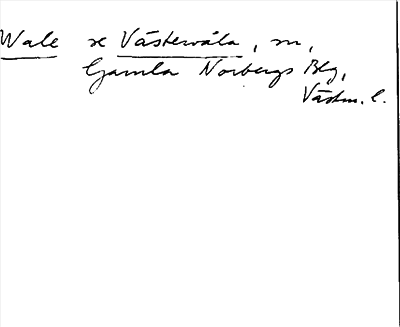 Wale se Västervåla, sn,
Gamla Norbergs Blg,
Västm. l.